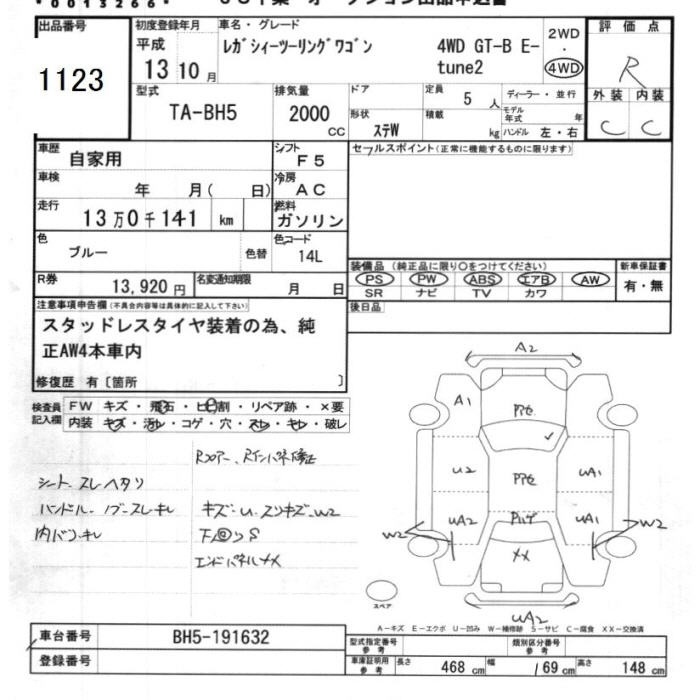 *0013266*
出品番号
1123
初度登録年月
平成
13 10 月
車名・グレード
レガシィーツーリングワゴン
4WD GT-B E-
tune2
2WD
・
4WD
評価点
R
外装 内装
C C
型式
TA-BH5
排気量
2000
CC
ドア
形状
ステW
定員
5 人
積載
kg
ディーラー・並行
モデル
年式
年
ハンドル 左・右
車歴
自家用
シフト
F5
車検
年 月( 日)
冷房
AC
走行
13万0千141 km
燃料
ガソリン
色
ブルー
色替
色コード
14L
R券
13,920 円
名変通知期限
月 日
セールスポイント(正常に機能するものに限ります)
装備品(純正品に限り○をつけてください)
PS PW ABS エアB AW
SR ナビ TV カワ
新車保証書
有・無
後日品
注意事項申告欄(不具合内容等は具体的に記入して下さい)
スタッドレスタイヤ装着の為、純
正AW4本車内
修復歴 有〔箇所 〕
検査員
記入欄
FW キズ・飛石・ヒビ割・リペア跡・×要
内装 キズ・汚レ・コゲ・穴・スレ・キレ・破レ
シートスレヘタリ
キズ・U・スリキズ・W2
エンドパネルXX
A2
A1
U2
UA2
W2
UA1
UA1
W2
XX
UA2
スペア
A-キズ E-エクボ U-凹み W-補修跡 S-サビ C-腐食 XX-交換済
車台番号
BH5-191632
登録番号
型式指定番号
参考
類別区分番号
参考
車庫証明用
参考
長さ 468 cm 幅 169 cm 高さ 148 cm